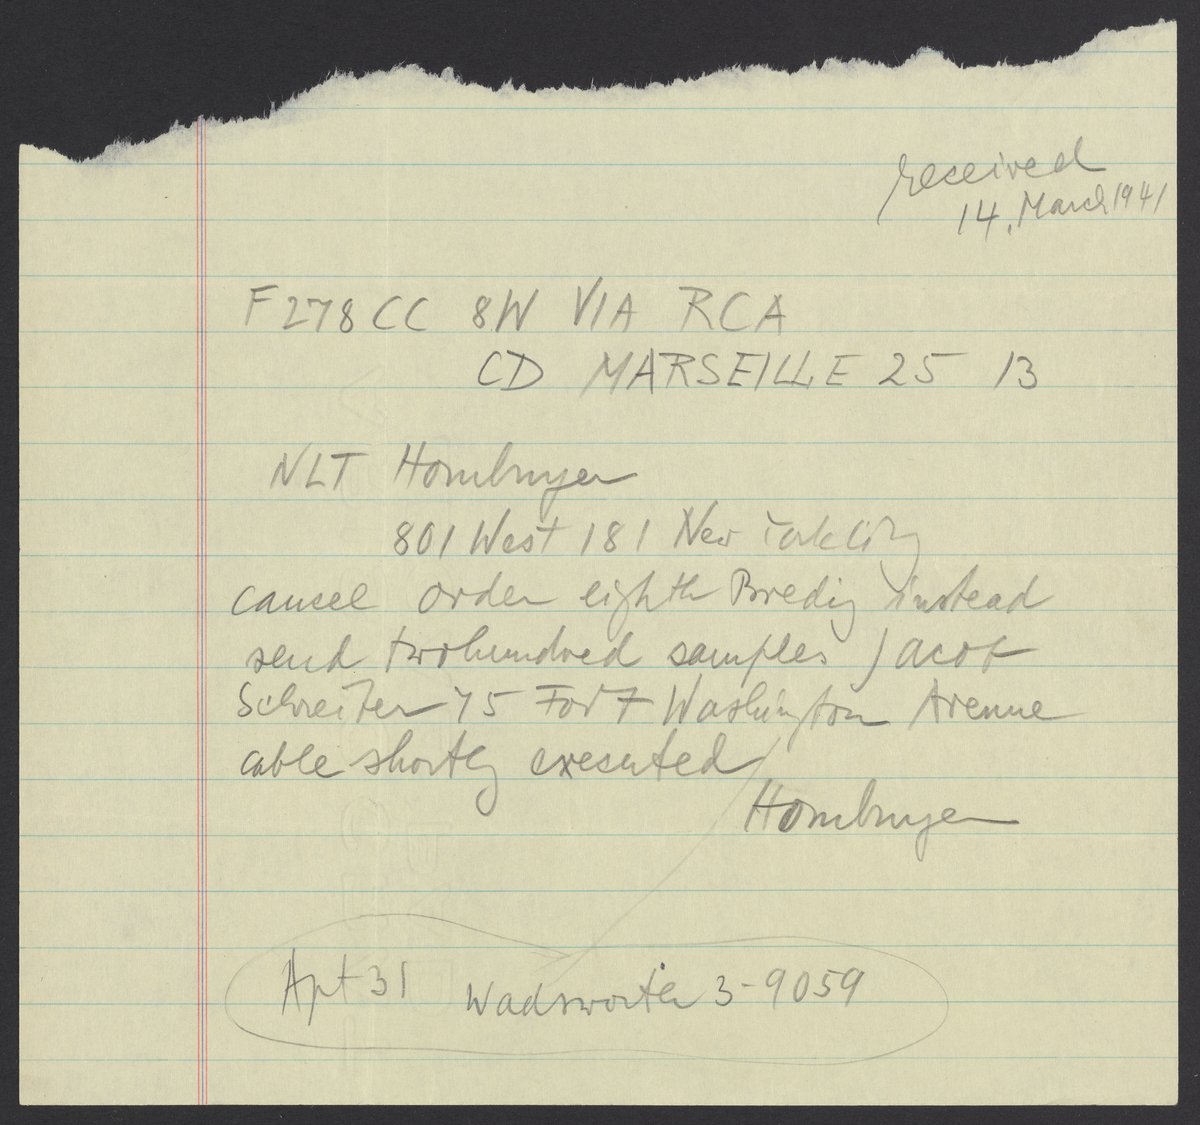 received
14. March 1941
F278CC 8W VIA RCA
CD MARSEILLE 25 13
NLT Homburger
801 West 181 New York City
cancel order eighth Bredig instead
send twohundred samples Jacob
Schreiber 75 Fort Washington Avenue
cable shortly executed
Homburger
Apt 31 Wadsworth 3-9059